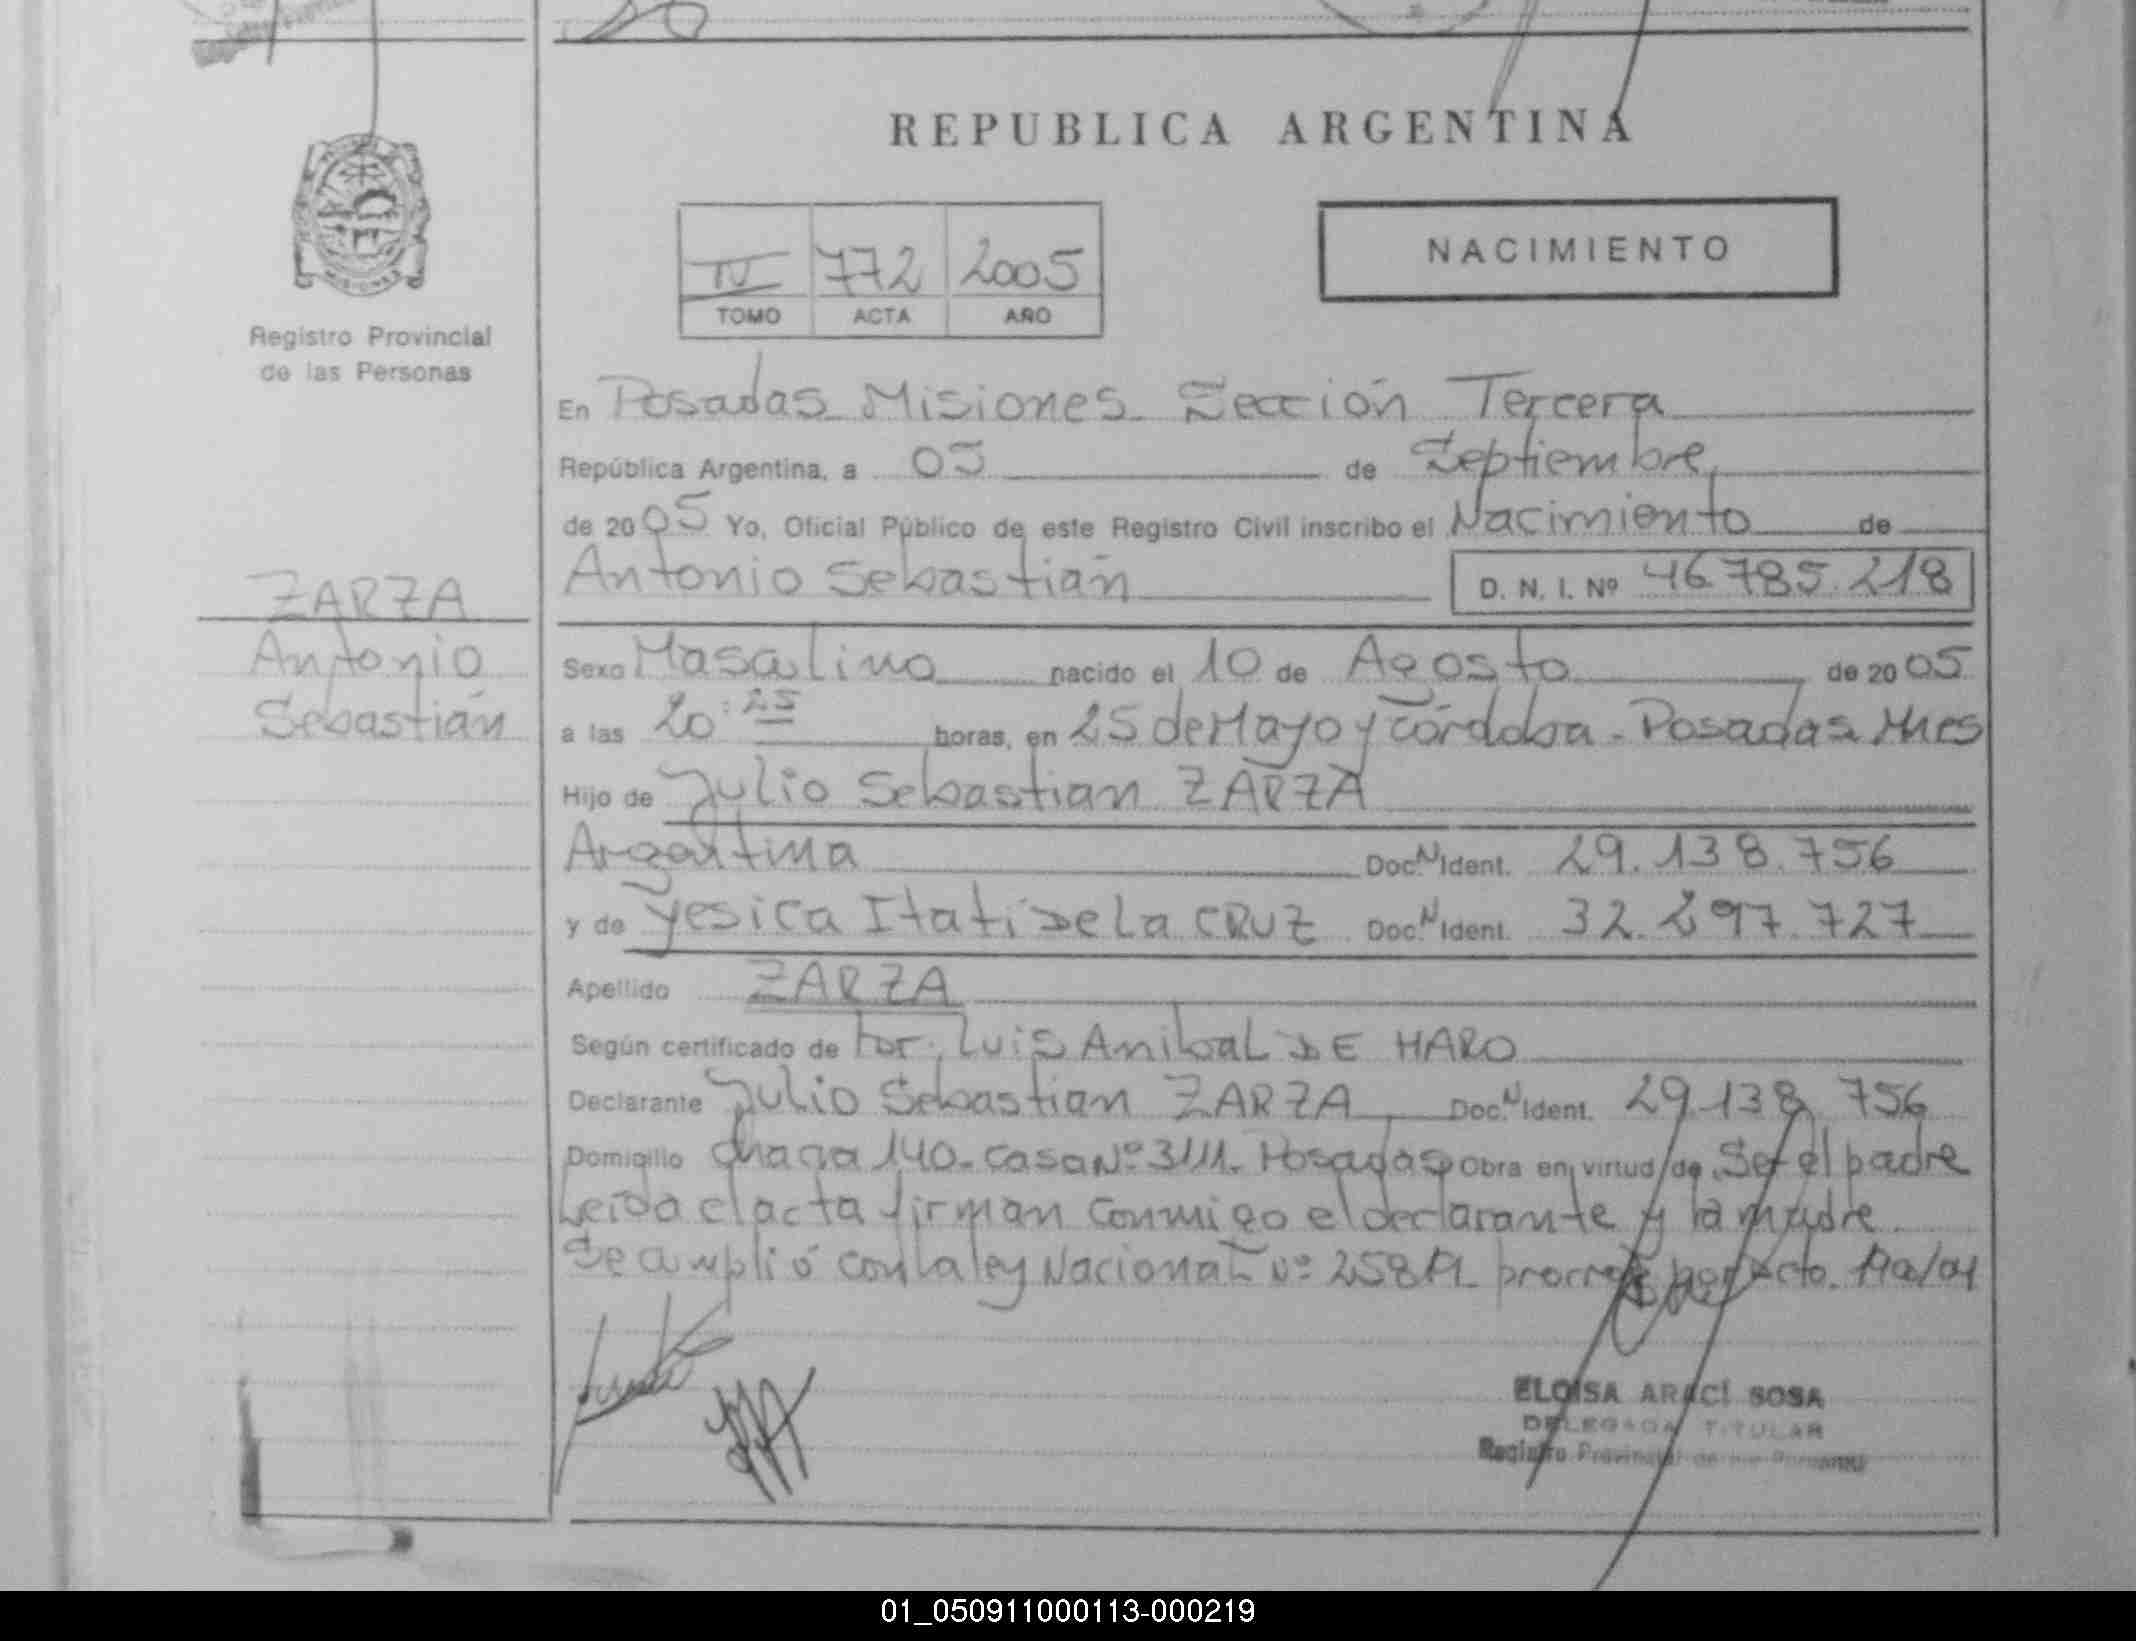 REPUBLICA ARGENTINA
IV 772 2005
TOMO ACTA AÑO
NACIMIENTO
MISIONES
Registro Provincial
de las Personas
ZARZA
Antonio
Sebastián
En Posadas Misiones Sección Tercera
República Argentina, a 05 de Septiembre
de 2005 Yo, Oficial Público de este Registro Civil inscribo el Nacimiento de
Antonio Sebastián D. N. I. Nº 46.785.218
Sexo Masculino nacido el 10 de Agosto de 2005
a las 20:25 horas, en 25 de Mayo y Córdoba - Posadas Mnes
Hijo de Julio Sebastian ZARZA
Argentina Doc.N Ident. 29.138.756
y de Yesica Itatí De la CRUZ Doc.N Ident. 32.297.727
Apellido ZARZA
Según certificado de Luis Anibal DE HARO
Declarante Julio Sebastian ZARZA Doc.N Ident. 29.138.756
Domicilio chacra 140 - casa Nº 3111 - Posadas Obra en virtud de Ser el padre
Leida el acta firman Conmigo el declarante y la madre
Se cumplió con la ley Nacional Nº
ELOISA ARACÍ SOSA
DELEGADA TITULAR
Registro Provincial de las Personas
01_050911000113-000219